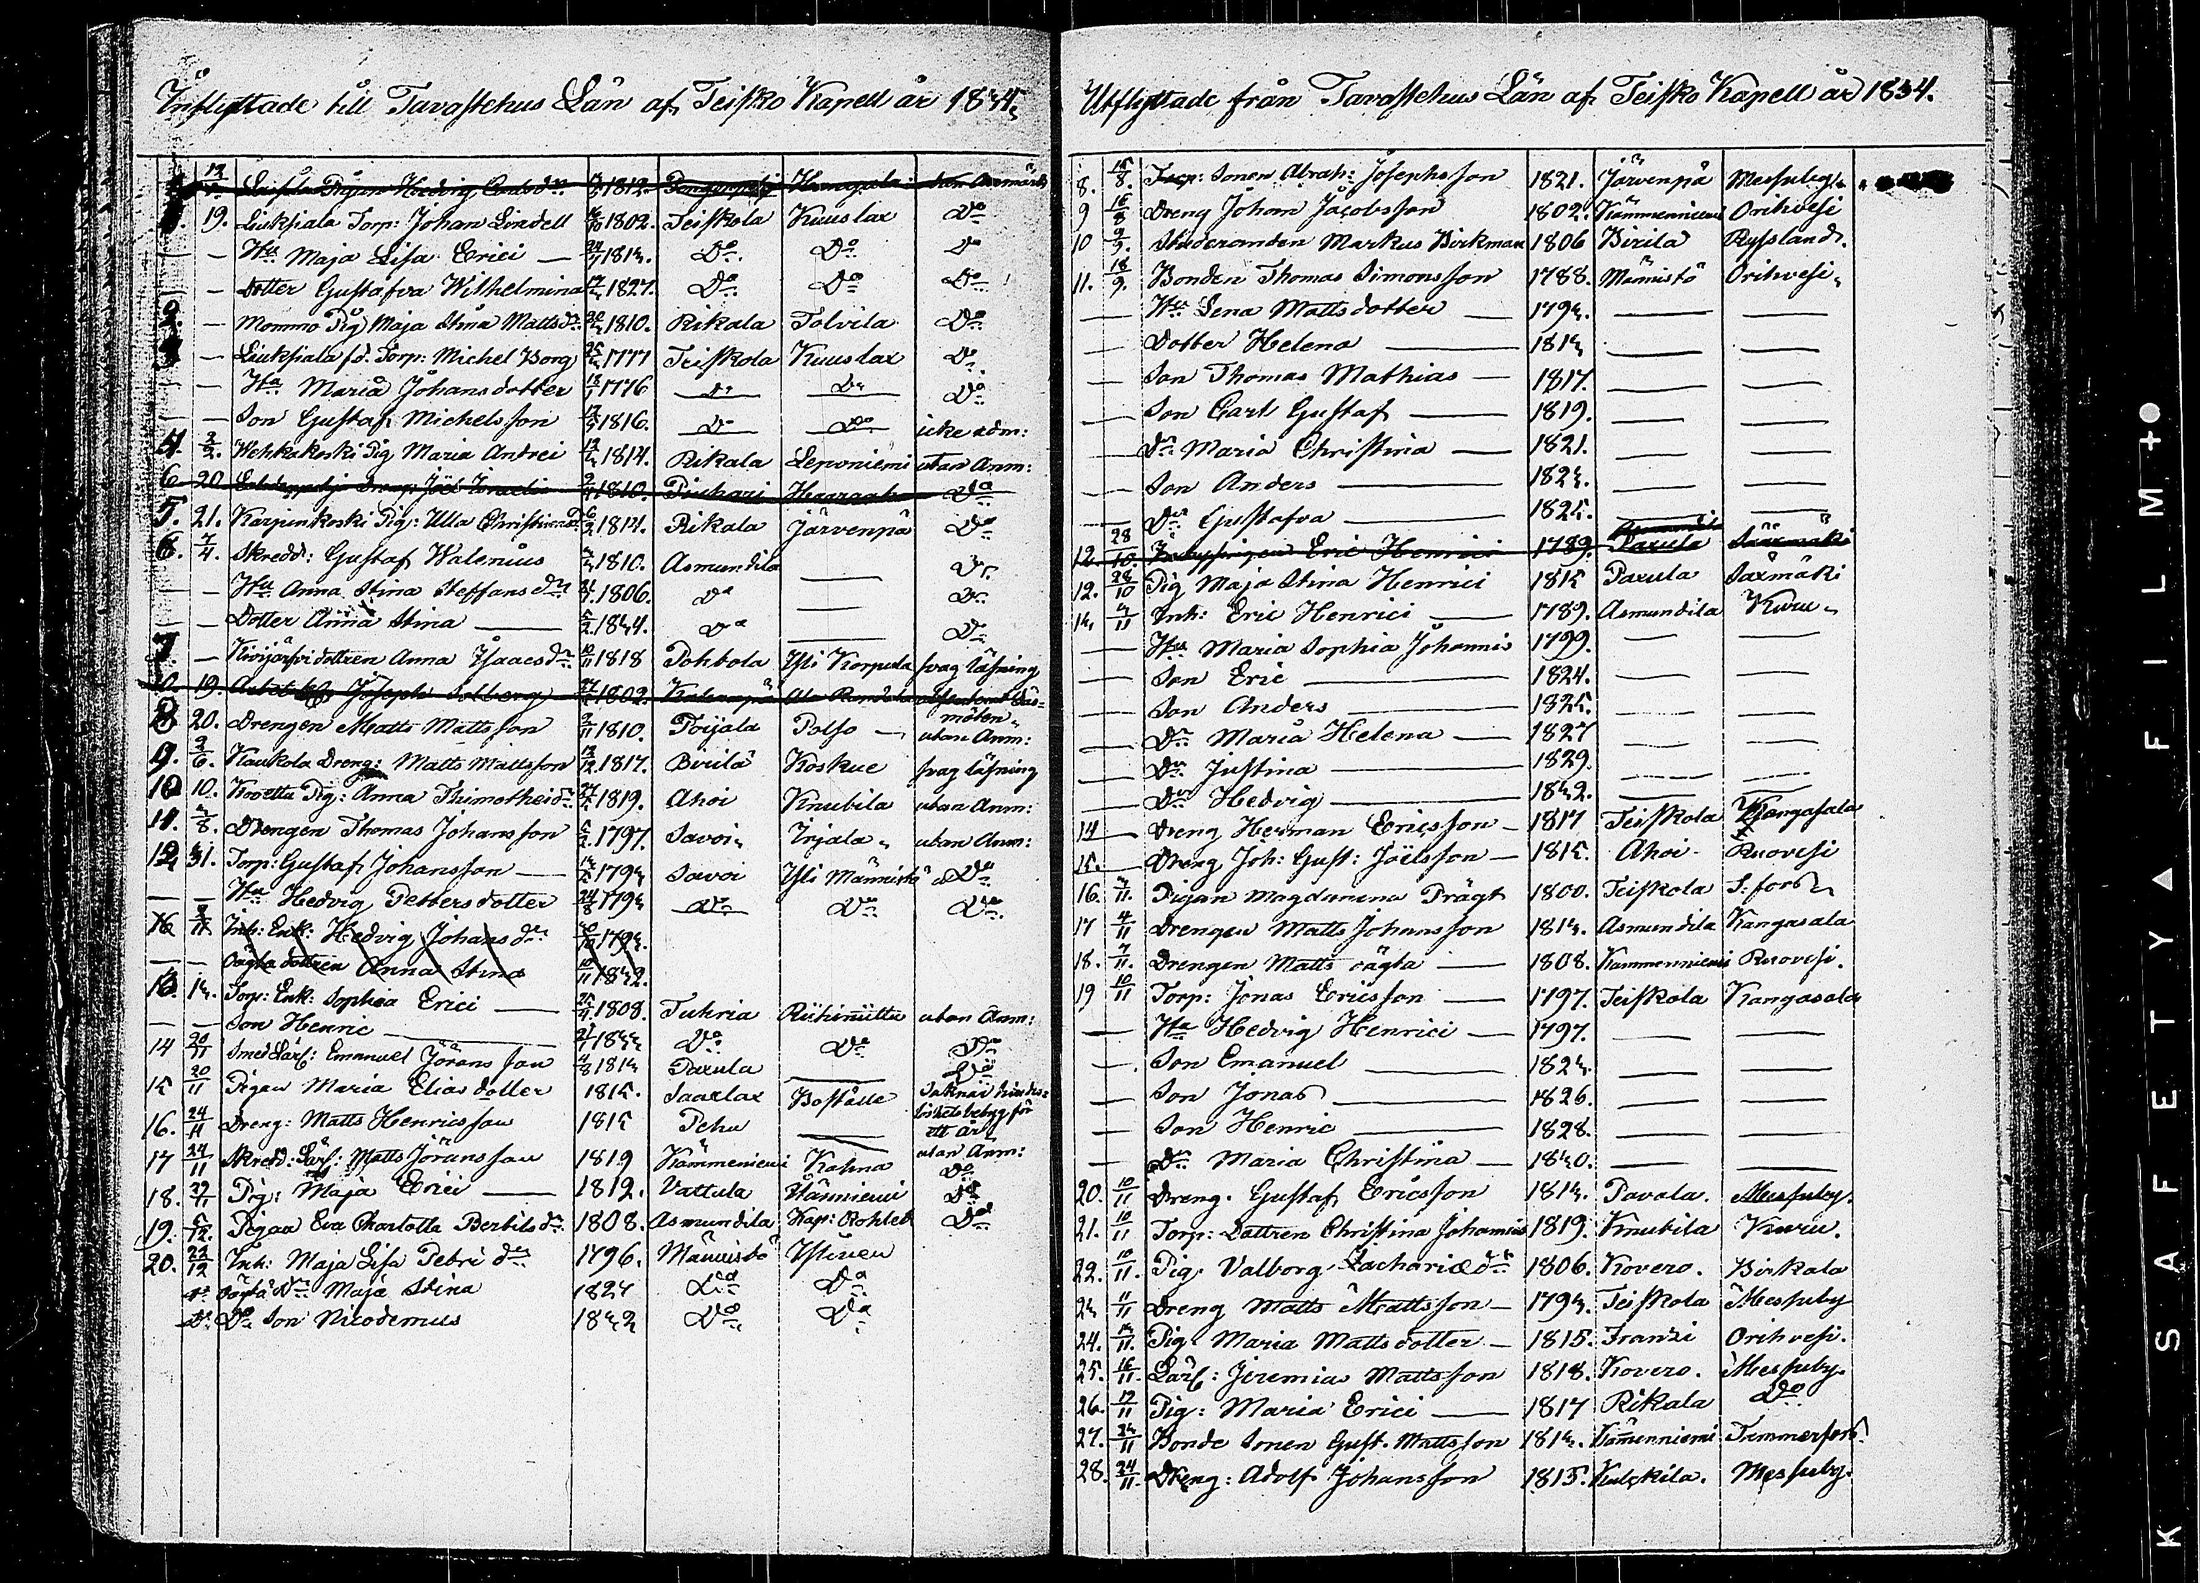 Inflyttade till Tavastehus Län af Teisko Kapell år 1834.
19. Liuksiala Torp: Johan Lindell 1802. Teiskola Kuuslax Do
— — Hu Maja Lisa Erici — 1813. Do Do Do
— — Dotter Gustafva Wilhelmina 1827. Do Do Do
2. — Mommo Pig Maja Stina Mattsdr 1810. Rikala Tolvila Do
3 — Liuksiala fd. Torp: Michel Borg 1777 Teiskola Kuuslax Do
— — Hu Maria Johansdotter 1776 Do Do Do
— — Son Gustaf Michelsson 1816. Do Do icke adm:
4. 3/2. Wehkakoski Pig Maria Andrei 1814. Rikala Leponiemi utan Anm:
6. 20. 1810. Do
5. 21. Karjenkoski Pig: Ulla Christina 1814. Rikala Järvenpä Do
6. 7/4. Skredd: Gustaf Walenius 1810. Asmundila — Do
— — Hu Anna Stina Steffansdr 1806. Do — Do
— — Dotter Anna Stina — 1834. Do — Do
7. — Kivijärfvi dottren Anna Isaacsdr 10/11 1818 Pohtola Yli Korpula svag läsning
19. Joseph Solberg 1802.
8 20. Drengen Matts Mattsson 1810. Toijala Polso — utan Anm:
9. 2/6. Kaukola Dreng: Matts Mattsson 1817. Viitala Koskue svag läsning
10 10. Kovetta Pig: Anna Thimotheidr 1819. Ahoi Knubila utan Anm:
11. 3/8. Drengen Thomas Johansson 1797. Savoi Irjala utan Anm:
12 31. Torp: Gustaf Johansson — 1793 Savoi Yli Männistö Do
— — Hu Hedvig Pettersdotter 24/8 1793 Do Do Do
Inh: Enk: Hedvig Johansdr 1793.
— — oägta dottren Anna Stina 10/11 1832.
13. 13. Torp: Enk: Sophia Erici — 1808. Tuhria Riihimitta utan Anm:
— — Son Henric — 1833 Do Do Do
14 20/11 Smed Lärl: Emanuel Göransson 4/8 1813 Paxula — Do
15 20/11 Pigan Maria Eliasdotter 1815. Saarlax Boställe
16. 24/11 Dreng: Matts Henricsson 1815 Pehu — ett år
17 24/11 Skredd: Lärl: Matts Göransson 1819 Kämmeniemi Kahna utan Anm: Do
18. 29/11 Pig: Maja Erici — 1812. Vattula Hänniemi Do
19. 5/12. Pigan Eva Charlotta Bertilsdr 1808. Asmundila Kap: Bohlet Do
20. 22/12 Inh: Maja Lisa Petri dr 1796. Männistö Ylinen
Do oägta Dr Maja Stina 1824 Do Do
Do Do Son Nicodemus 1832 Do Do
Utflyttade från Tavastehus Län af Teisko Kapell år 1834.
8. 15/8. Torp: Sonen Abrah: Josephsson 1821. Järvenpä Messuby
9 16/8 Dreng Johan Jacobsson 1802. Kämmeniemi Orihvesi
10 9/9. Studeranden Markus Birkman 1806 Birila Ryssland.
11. 18/9. Bonden Thomas Simonsson 1788. Männistö Orihvesi
— Hu Lena Mattsdotter — 1793. — —
— Dotter Helena — 1813 — —
— Son Thomas Mathias — 1817. — —
— Son Carl Gustaf — 1819. — —
— Dr Maria Christina — 1821. — —
— Son Anders — 1823. — —
— Dr Gustafva — 1825. — —
12 28/10. Eric Henrici 1789. Paxula Säärmäki
12. 28/10 Pig Maja Stina Henrici 1815 Paxula Säxmäki
13. 3/11 Inh: Eric Henrici — 1789. Asmundila Kuru
— Hu Maria Sophia Johannis 1799. — —
— Son Eric — 1824. — —
— Son Anders — 1825. — —
— Dr Maria Helena — 1827 — —
— Dr Justina — 1829. — —
— Dr Hedvig — 1832. — —
14 — Dreng Herman Ericsson — 1817 Teiskola Kangasala
15. — Dreng Joh: Gust: Joelsson — 1815. Ahoi Ruovesi
16. 3/11. Pigan Magdalena Prägt 1800. Teiskola T: fors
17 4/11 Drengen Matts Johansson 1813. Asmundila Kangasala
18. 7/11. Drengen Matts oägta — 1808. Kämmenniemi Ruovesi.
19 10/11 Torp: Jonas Ericsson — 1797. Teiskola Kangasala
— Hu Hedvig Henrici — 1797. — —
— Son Emanuel — 1823. — —
— Son Jonas — 1826. — —
— Son Henric — 1828. — —
— Dr Maria Christina — 1830. — —
20. 10/11 Dreng. Gustaf Ericsson 1813. Pavola. Messuby.
21. 10/11 Torp: Dottren Christina Johannis 1819. Knubila Kuru.
22. 10/11. Pig. Valborg Zachariædr 1806. Kovero. Birkala
23 11/11 Dreng Matts Mattsson — 1793. Teiskola Messuby
24. 13/11. Pig. Maria Mattsdotter — 1815. Franzi Orihvesi.
25. 16/11. Lärl: Jeremias Mattsson 1818. Kovero. Messuby.
26. 17/11 Pig: Maria Erici — 1817 Rikala Do
27. 23/11 Bonde Sonen Gust. Mattsson 1813. Kämmenniemi Tammerfors.
28. 24/11. Dreng: Adolf Johansson 1815. Kulkkila. Messuby.
K SAFETY FILM